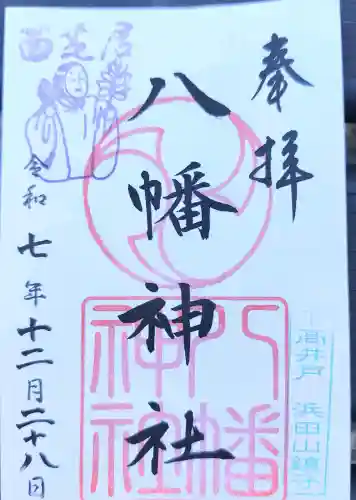 奉拝
八幡神社
令和七年十二月二十八日
西芝居
八幡神社
高井戸 浜田山鎮守